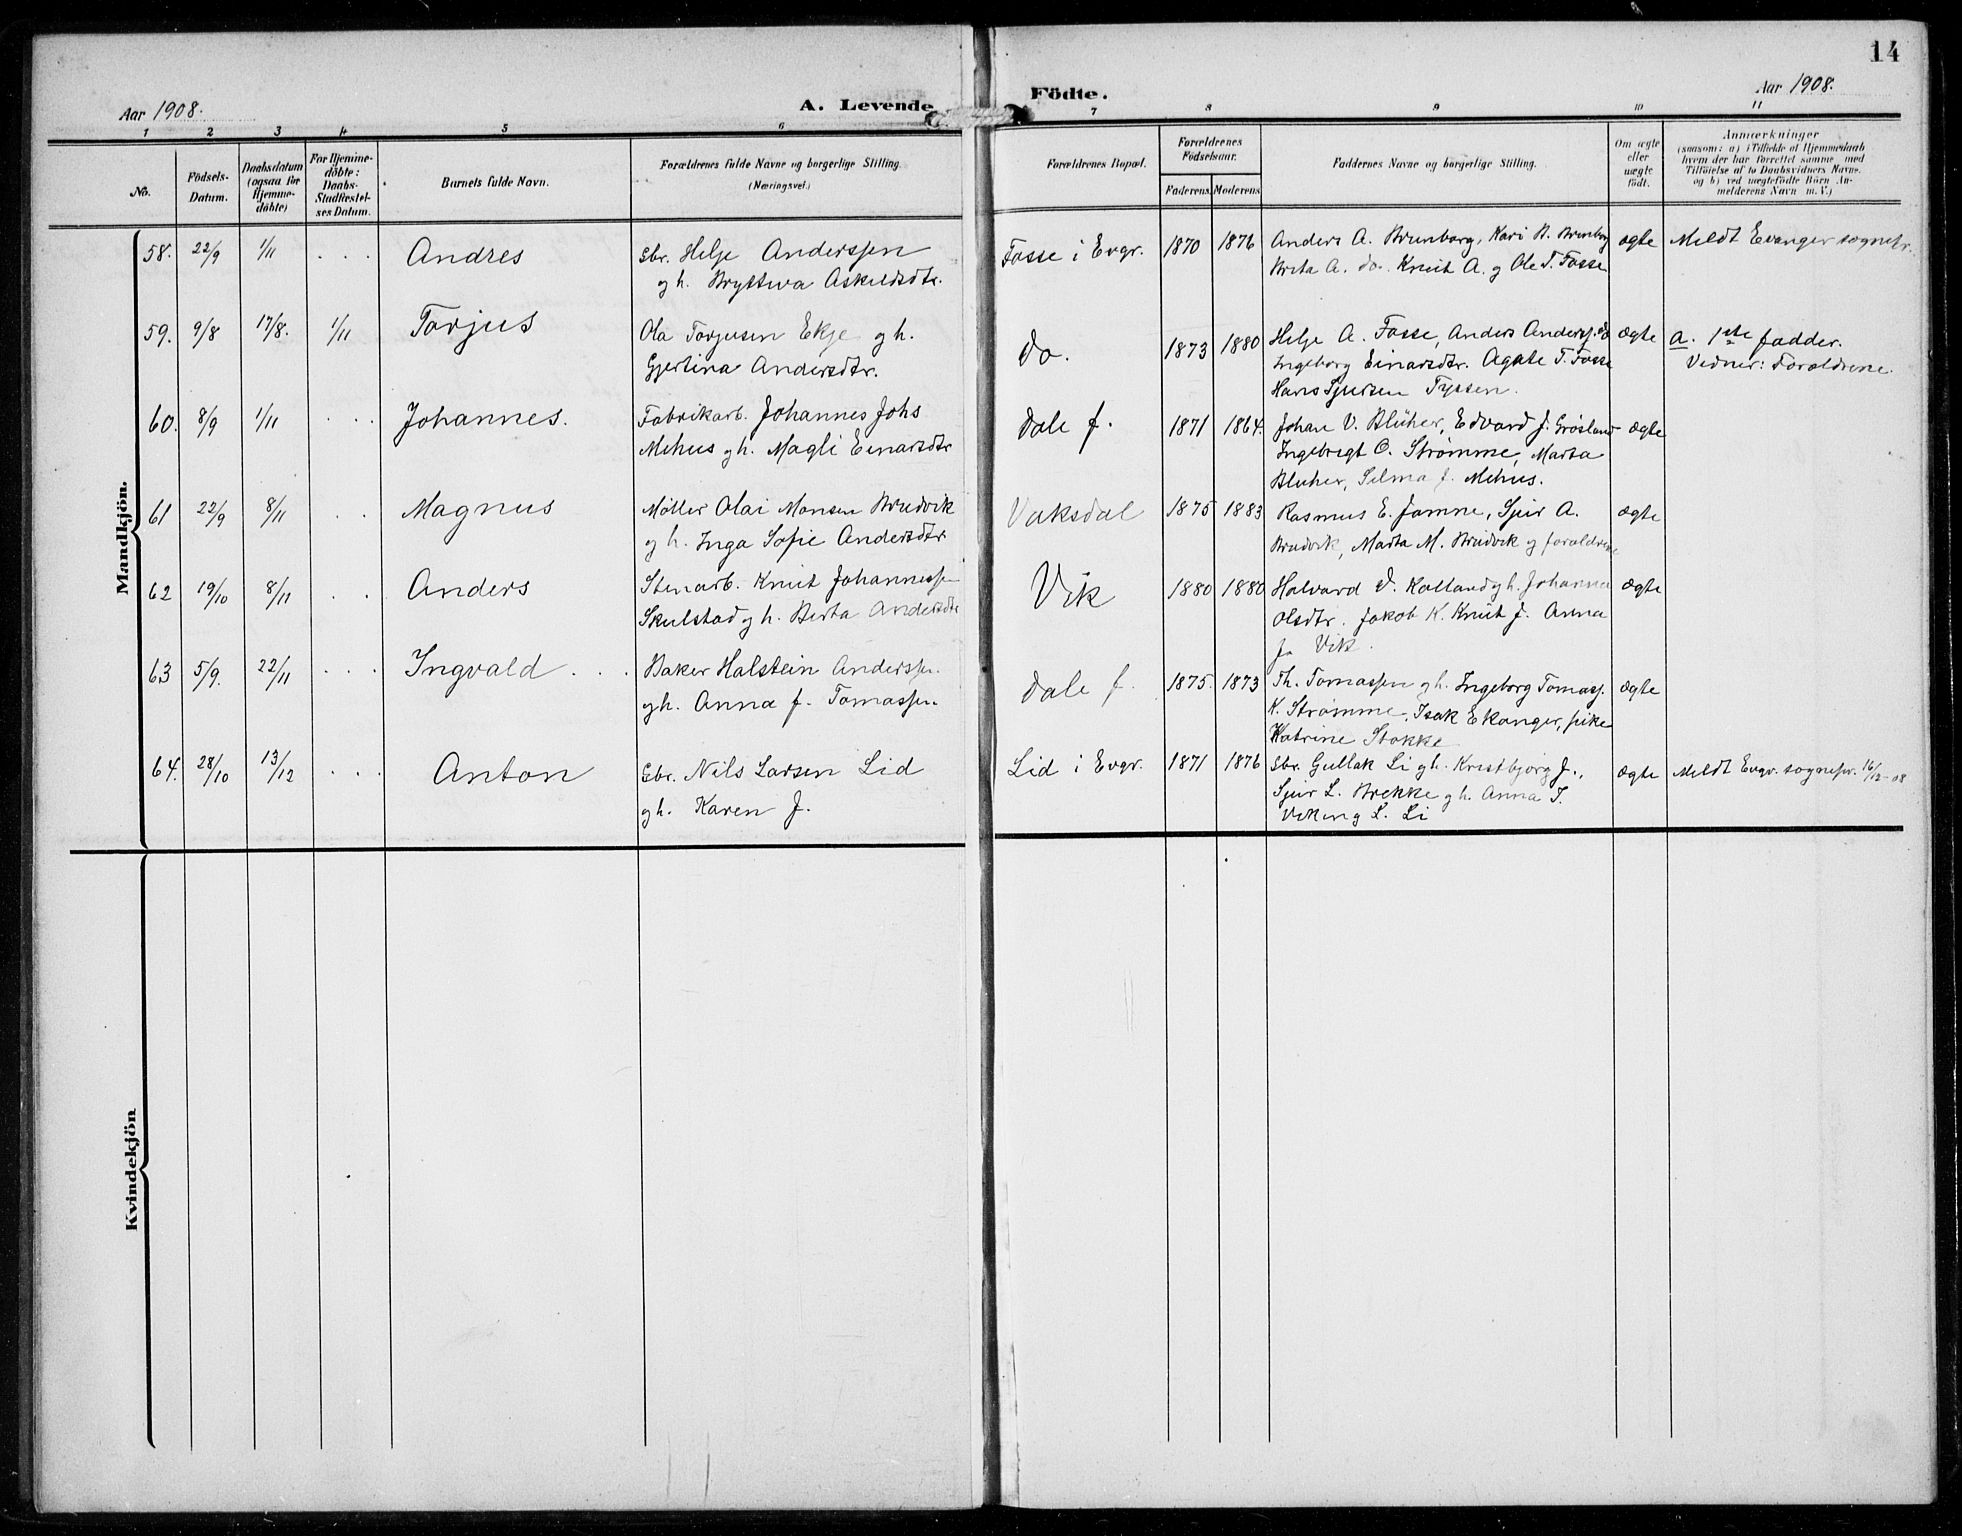 14
Aar 1908.
A. Levende
Födte.
Aar 1908.
1 2 3 4 5 6 7 8 9 10 11
No.
Födsels-
Datum.
Daabsdatum
(ogsaa for
Hjemme-
döbte)
For Hjemme-
döbte:
Daabs-
Stadfæstel-
ses Datum.
Barnets fulde Navn.
Forældrenes fulde Navne og borgerlige Stilling.
(Næringsvei.)
Forældrenes Bopæl.
Forældrenes
Födselsaar.
Faderens. Moderens.
Faddernes Navne og borgerlige Stilling.
Om ægte
eller
uægte
födt.
Anmærkninger
(saasom: a) i Tilfælde af Hjemmedaab
hvem der har forrettet samme, med
Tilföielse af to Daabsvidners Navne.
og b) ved uægtefödte Börn An-
melderens Navn m. V.)
Mandkjön.
58. 22/9 1/11 . . . Andres
Gbr. Helje Anderssen
og h. Bryttva Askildsdtr.
Fosse i Evgr. 1870 1876
Anders A. Brunborg, Kari B. Brunborg
Brita A. do. Knut A. og Ole T. Fosse
ægte
Meldt Evanger sognepr.
59. 9/8 17/8. 1/11 Torjus
Ola Torjusen Ekje og h.
Gjertina Andersdtr.
do. 1873 1880
Helje A. Fosse, Anders Anderss. do
Ingeborg Einarsdtr. Agate T. Fosse
Hans Sjursen Tyssen.
ægte
a. 1ste fadder.
Vidner: Forældrene.
60. 8/9 1/11 . . . Johannes.
Fabrikarb. Johannes Johs
Mehus og h. Magli Einarsdtr
Dale f. 1871 1864.
Johan V. Blüher, Edvard J. Grøsland
Ingebrigt O. Strømme, Marta
Bluher, Selma J. Mehus.
ægte
61 22/9 8/11 . . Magnus
Møller Olai Monsen Brudvik
og h. Inga Sofie Andersdtr
Vaksdal 1875 1883
Rasmus E. Jamne, Sjur A.
Brudvik, Marta M. Brudvik og forældrene
ægte
62 19/10 8/11 . . Anders
Stenarb. Knut Johannesse
Skulstad og h. Berta Andersdtr
Vik 1880 1880
Halvard V. Kalland og h. Johanna
Olsdtr. Jakob K. Knut J. Anna
J. Vik.
ægte
63 5/9. 22/11 . . . Ingvald . . .
Baker Halstein Anderssen
og h. Anna f. Tomassen.
Dale f. 1875. 1873
Th. Tomassen og h. Ingeborg Tomass.
K. Strømme, Isak Ekanger, pike
Katrine Stokke
ægte
64. 28/10 13/12 . . . Anton
Gbr. Nils Larsen Lid
og h. Karen J.
Lid i Evgr. 1871 1876
Gbr. Gullak Li og h. Kristbjørg J.,
Sjur L. Brekke og h. Anna I.
Viking L. Li
ægte
Meldt Evgr. sognepr. 16/12-08
Kvindekjön